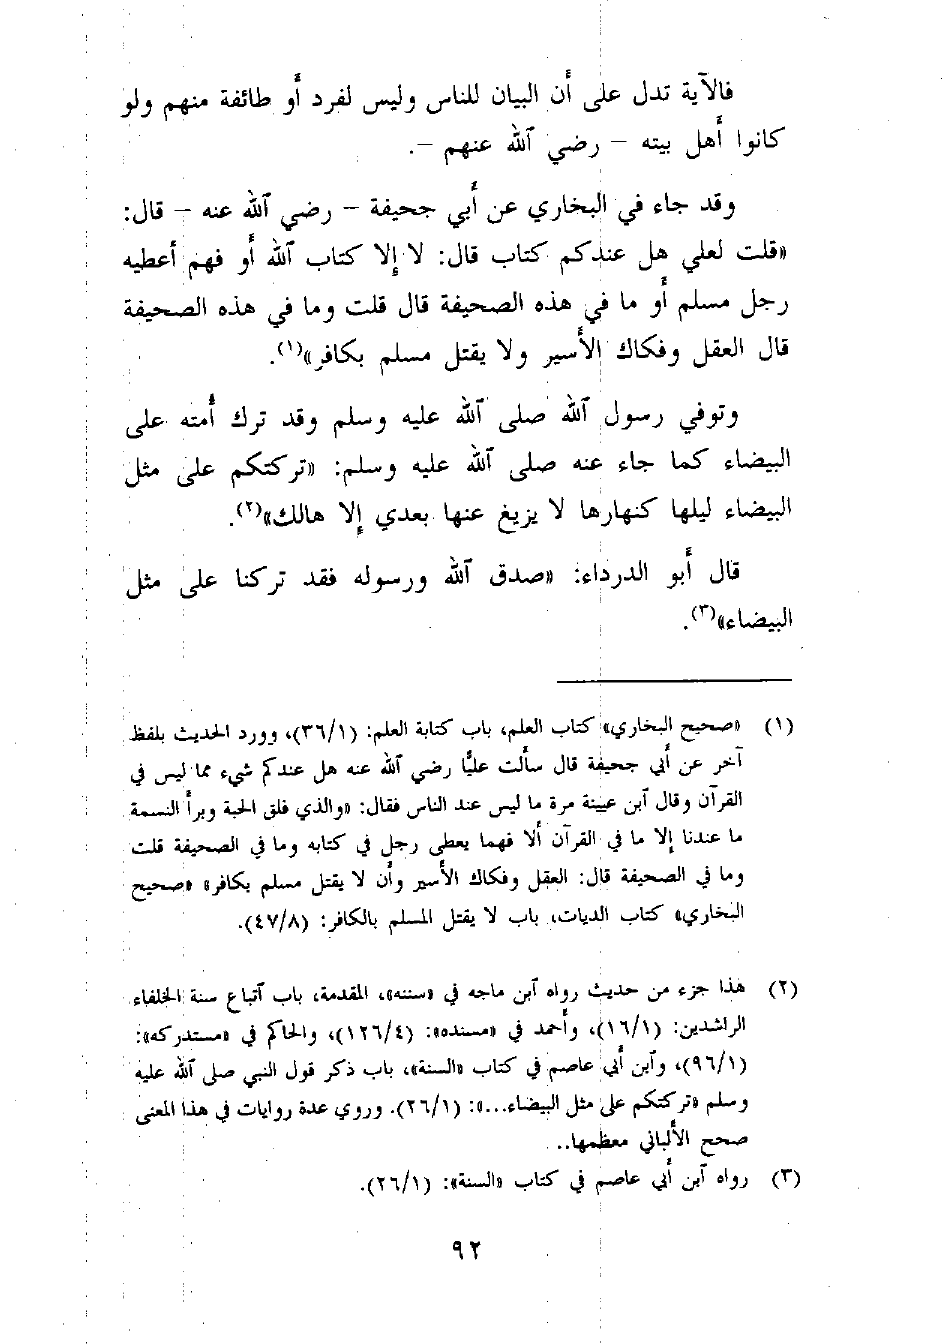 فالآية تدل على أن البيان للناس وليس لفرد أو طائفة منهم ولو
كانوا أهل بيته – رضي الله عنهم –.
وقد جاء في البخاري عن أبي جحيفة – رضي الله عنه – قال:
«قلت لعلي هل عندكم كتاب قال: لا إلا كتاب الله أو فهم أعطيه
رجل مسلم أو ما في هذه الصحيفة قال قلت وما في هذه الصحيفة
قال العقل وفكاك الأسير ولا يقتل مسلم بكافر»(١).
وتوفي رسول الله صلى الله عليه وسلم وقد ترك أمته على
البيضاء كما جاء عنه صلى الله عليه وسلم: «تركتكم على مثل
البيضاء ليلها كنهارها لا يزيغ عنها بعدي إلا هالك»(٢).
قال أبو الدرداء: «صدق الله ورسوله فقد تركنا على مثل
البيضاء»(٣).
(١) «صحيح البخاري» كتاب العلم، باب كتابة العلم: (٣٦/١)، وورد الحديث بلفظ
آخر عن أبي جحيفة قال سألت عليًّا رضي الله عنه هل عندكم شيء مما ليس في
القرآن وقال ابن عيينة مرة ما ليس عند الناس فقال: «والذي فلق الحبة وبرأ النسمة
ما عندنا إلا ما في القرآن ألا فهما يعطى رجل في كتابه وما في الصحيفة قلت
وما في الصحيفة قال: العقل وفكاك الأسير وأن لا يقتل مسلم بكافر» «صحيح
البخاري» كتاب الديات، باب لا يقتل المسلم بالكافر: (٤٧/٨).
(٢) هذا جزء من حديث رواه ابن ماجه في «سننه»، المقدمة، باب اتباع سنة الخلفاء
الراشدين: (١٦/١)، وأحمد في «مسنده»: (١٢٦/٤)، والحاكم في «مستدركه»:
(٩٦/١)، وابن أبي عاصم في كتاب «السنة»، باب ذكر قول النبي صلى الله عليه
وسلم «تركتكم على مثل البيضاء...»: (٢٦/١). وروي عدة روايات في هذا المعنى
صحح الألباني معظمها..
(٣) رواه ابن أبي عاصم في كتاب «السنة»: (٢٦/١).
٩٢